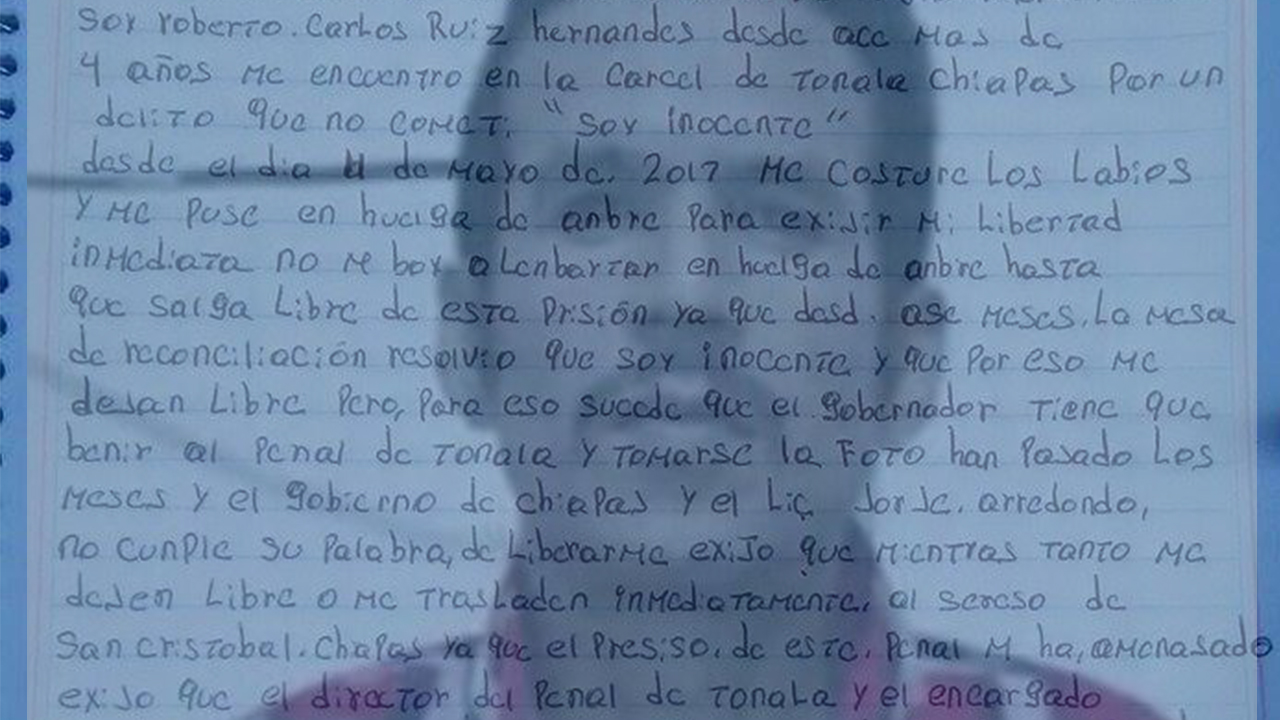 Soy roberto. Carlos Ruiz hernandes desde ace Mas de
4 años me encuentro en la Carcel de Tonala Chiapas Por un
delito que no comeTi "Soy inocente"
desde el dia 4 de Mayo de. 2017 Me costure Los Labios
y me puse en huelga de anbre Para exijir Mi Libertad
inmediata no me boy a Lenbartar en huelga de anbre hasta
que salga Libre de esta Prisión ya que desd. ase meses. La mesa
de reconciliación resolvio que soy inocente y que Por eso Me
dejan Libre Pero, Para eso sucede que el gobernador Tiene que
benir al Penal de Tonala y Tomarse la Foto han Pasado Los
Meses y el gobierno de chiapas y el Lic Jorje. arredondo,
no cunple su Palabra, de Liberarme exijo que mientras Tanto Me
dejen Libre o me Trasladen inmediatamente, al sereso de
San cristobal. Chapas ya que el Presiso. de este. Penal M ha, amenasado
exijo que el director del Penal de Tonala y el encargado